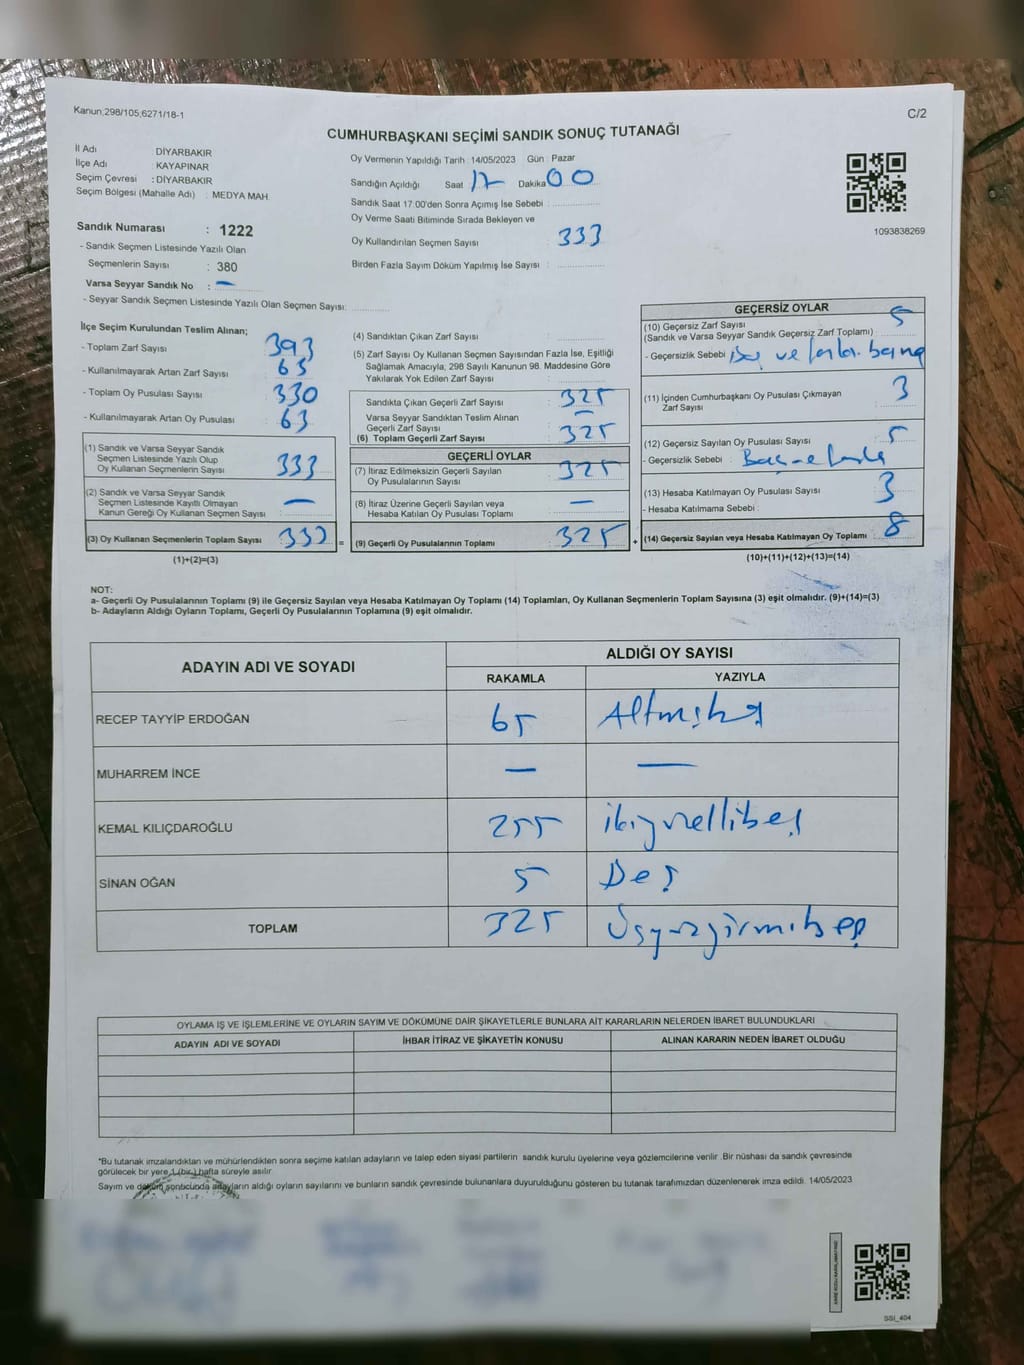 Kanun;298/105;6271/18-1
C/2
CUMHURBAŞKANI SEÇİMİ SANDIK SONUÇ TUTANAĞI
İl Adı DİYARBAKIR
İlçe Adı : KAYAPINAR
Seçim Çevresi : DİYARBAKIR
Seçim Bölgesi (Mahalle Adı) : MEDYA MAH.
Sandık Numarası : 1222
- Sandık Seçmen Listesinde Yazılı Olan
Seçmenlerin Sayısı : 380
Varsa Seyyar Sandık No : —
- Seyyar Sandık Seçmen Listesinde Yazılı Olan Seçmen Sayısı:
Oy Vermenin Yapıldığı Tarih : 14/05/2023 Gün : Pazar
Sandığın Açıldığı Saat 17 Dakika 00
Sandık Saat 17:00'den Sonra Açımış İse Sebebi :
Oy Verme Saati Bitiminde Sırada Bekleyen ve
Oy Kullandırılan Seçmen Sayısı : 333
Birden Fazla Sayım Döküm Yapılmış İse Sayısı :
1093838269
İlçe Seçim Kurulundan Teslim Alınan;
- Toplam Zarf Sayısı : 393
- Kullanılmayarak Artan Zarf Sayısı : 65
- Toplam Oy Pusulası Sayısı : 330
- Kullanılmayarak Artan Oy Pusulası : 63
(1) Sandık ve Varsa Seyyar Sandık
Seçmen Listesinde Yazılı Olup
Oy Kullanan Seçmenlerin Sayısı : 333
(2) Sandık ve Varsa Seyyar Sandık
Seçmen Listesinde Kayıtlı Olmayan
Kanun Gereği Oy Kullanan Seçmen Sayısı : —
(3) Oy Kullanan Seçmenlerin Toplam Sayısı : 333 =
(1)+(2)=(3)
(4) Sandıktan Çıkan Zarf Sayısı :
(5) Zarf Sayısı Oy Kullanan Seçmen Sayısından Fazla İse, Eşitliği
Sağlamak Amacıyla; 298 Sayılı Kanunun 98. Maddesine Göre
Yakılarak Yok Edilen Zarf Sayısı :
Sandıkta Çıkan Geçerli Zarf Sayısı : 325
Varsa Seyyar Sandıktan Teslim Alınan
Geçerli Zarf Sayısı : —
(6) Toplam Geçerli Zarf Sayısı : 325
GEÇERLİ OYLAR
(7) İtiraz Edilmeksizin Geçerli Sayılan
Oy Pusulalarının Sayısı : 325
(8) İtiraz Üzerine Geçerli Sayılan veya
Hesaba Katılan Oy Pusulası Toplamı : —
(9) Geçerli Oy Pusulalarının Toplamı : 325 +
GEÇERSİZ OYLAR
(10) Geçersiz Zarf Sayısı 5
(Sandık ve Varsa Seyyar Sandık Geçersiz Zarf Toplamı) :
- Geçersizlik Sebebi : ve
(11) İçinden Cumhurbaşkanı Oy Pusulası Çıkmayan
Zarf Sayısı : 3
(12) Geçersiz Sayılan Oy Pusulası Sayısı : 5
- Geçersizlik Sebebi :
(13) Hesaba Katılmayan Oy Pusulası Sayısı : 3
- Hesaba Katılmama Sebebi :
(14) Geçersiz Sayılan veya Hesaba Katılmayan Oy Toplamı : 8
(10)+(11)+(12)+(13)=(14)
NOT:
a- Geçerli Oy Pusulalarının Toplamı (9) ile Geçersiz Sayılan veya Hesaba Katılmayan Oy Toplamı (14) Toplamları, Oy Kullanan Seçmenlerin Toplam Sayısına (3) eşit olmalıdır. (9)+(14)=(3)
b- Adayların Aldığı Oyların Toplamı, Geçerli Oy Pusulalarının Toplamına (9) eşit olmalıdır.
ADAYIN ADI VE SOYADI ALDIĞI OY SAYISI
RAKAMLA YAZIYLA
RECEP TAYYİP ERDOĞAN 65 Altmışbeş
MUHARREM İNCE — —
KEMAL KILIÇDAROĞLU 255 ikiyüzellibeş
SİNAN OĞAN 5 Beş
TOPLAM 325 Üçyüzyirmibeş
OYLAMA İŞ VE İŞLEMLERİNE VE OYLARIN SAYIM VE DÖKÜMÜNE DAİR ŞİKAYETLERLE BUNLARA AİT KARARLARIN NELERDEN İBARET BULUNDUKLARI
ADAYIN ADI VE SOYADI İHBAR İTİRAZ VE ŞİKAYETİN KONUSU ALINAN KARARIN NEDEN İBARET OLDUĞU
*Bu tutanak imzalandıktan ve mühürlendikten sonra seçime katılan adayların ve talep eden siyasi partilerin sandık kurulu üyelerine veya gözlemcilerine verilir .Bir nüshası da sandık çevresinde
görülecek bir yere 1 (bir ) hafta süreyle asılır.
Sayım ve döküm sonucunda adayların aldığı oyların sayılarını ve bunların sandık çevresinde bulunanlara duyurulduğunu gösteren bu tutanak tarafımızdan düzenlenerek imza edildi. 14/05/2023
SSI_404